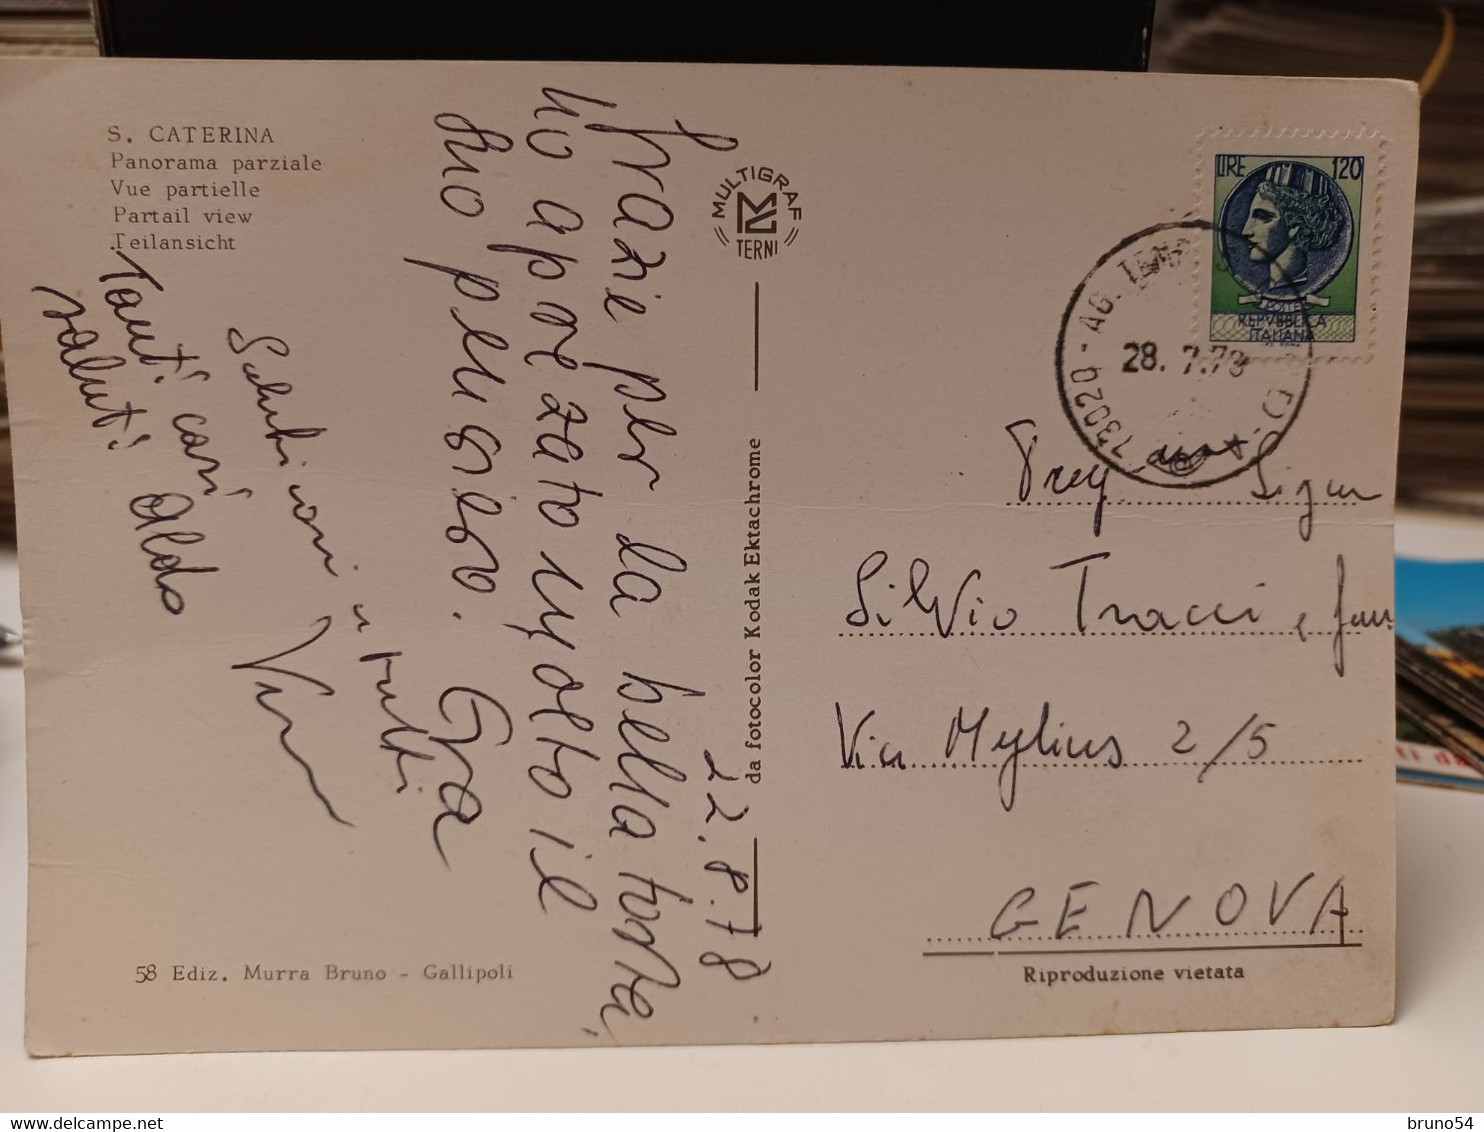 S. CATERINA
Panorama parziale
Vue partielle
Partail view
Teilansicht
22.8.78
Grazie per la bella torta,
ho aprezato molto il
tuo pensiero.
Salutissimi a tutti
Tanti cari
saluti
Aldo
MULTIGRAF
TERNI
da fotocolor Kodak Ektachrome
LIRE 120
POSTE
REPVBBLICA
ITALIANA
73020 - AG.
28. 7.78
Preg Sigur
Silvio Tracci e fam
Via Mylius 2/5
GENOVA
58 Ediz. Murra Bruno - Gallipoli
Riproduzione vietata
bruno54